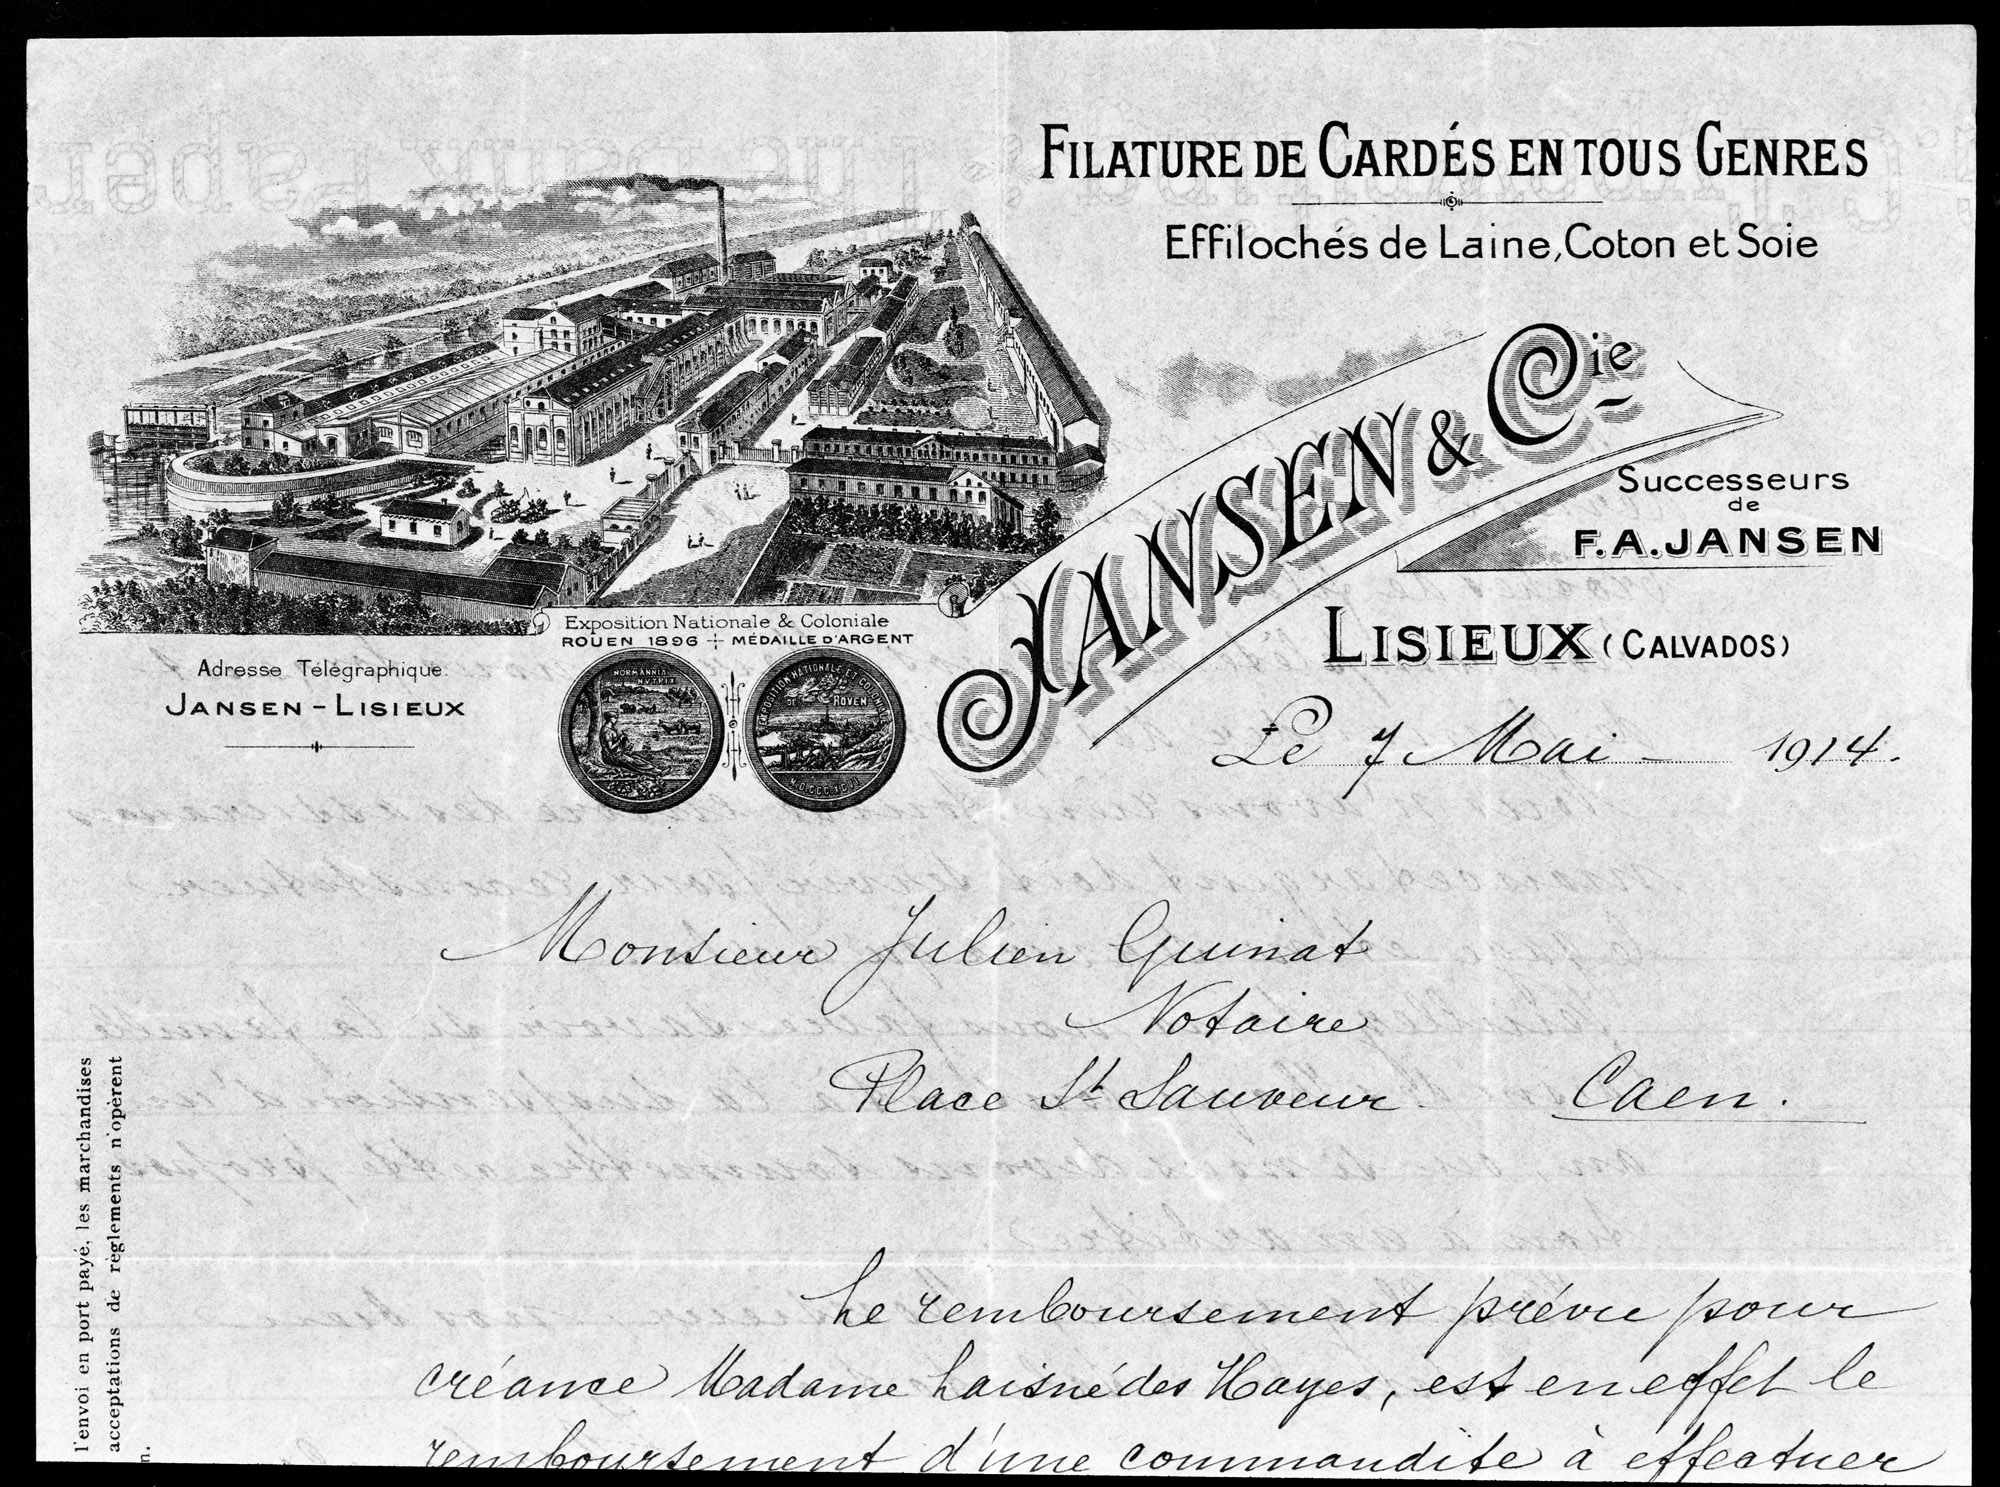 FILATURE DE CARDÉS EN TOUS GENRES
Effilochés de Laine, Coton et Soie
JANSEN & Cie
Successeurs
de
F. A. JANSEN
LISIEUX (CALVADOS)
Exposition Nationale & Coloniale
ROUEN 1896 MÉDAILLE D'ARGENT
NORMANNIA
NVTRIX
EXPOSITION NATIONALE ET COLONIALE
DE ROVEN
M.D.CCC.XCVI
Adresse Télégraphique.
JANSEN-LISIEUX
Le 7 Mai 1914.
Monsieur Julien Guinat
Notaire
Place St Sauveur. Caen.
Le remboursement prévu pour
créance Madame Laisné des Hayes, est en effet le
remboursement d'une commandite à effectuer
l'envoi en port payé, les marchandises
acceptations de règlements n'opèrent
n.